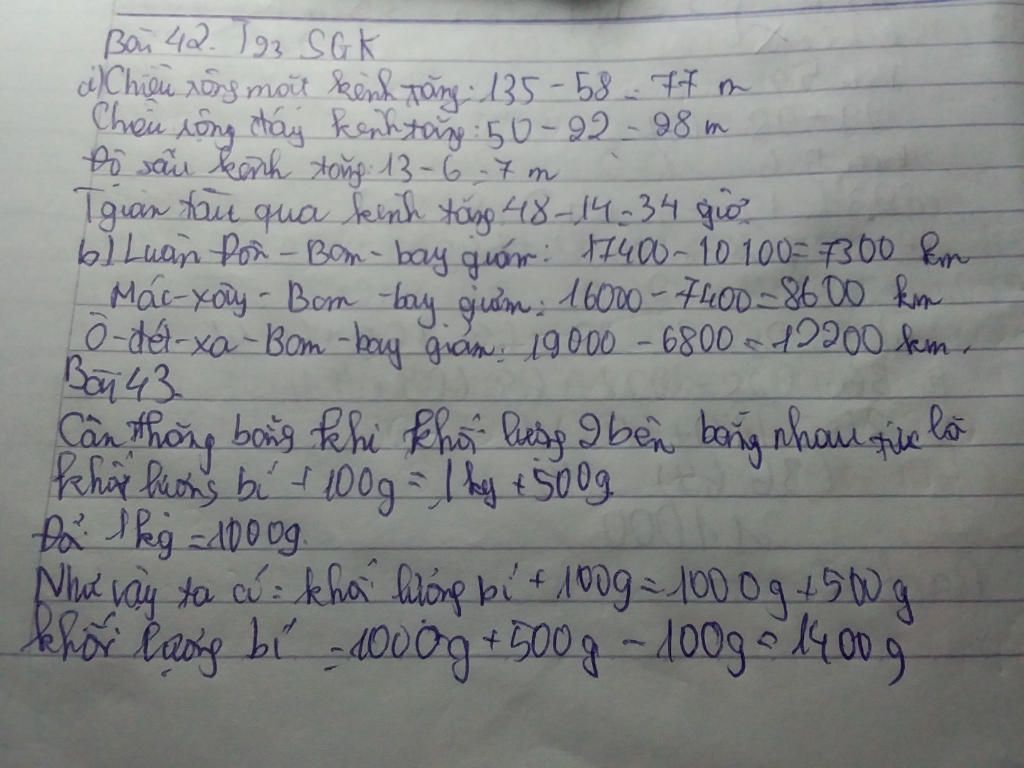 Bài 42. T93 SGK
a) Chiều rộng mặt kênh tăng: 135 - 58 = 77 m
Chiều rộng đáy kênh tăng: 50 - 22 = 28 m
Độ sâu kênh tăng: 13 - 6 = 7 m
Tgian tàu qua kênh tăng 48 - 14 = 34 giờ
b) Luân Đôn - Bom - bay giảm: 17400 - 10100 = 7300 km
Mác-xây - Bom - bay giảm: 16000 - 7400 = 8600 km
Ô-đét-xa - Bom - bay giảm: 19000 - 6800 = 12200 km.
Bài 43.
Cân thăng bằng khi khối lượng 2 bên bằng nhau tức là
khối lượng bí + 100g = 1kg + 500g.
Đổi 1kg = 1000g.
Như vậy ta có: khối lượng bí + 100g = 1000g + 500g
khối lượng bí = 1000g + 500g - 100g = 1400g